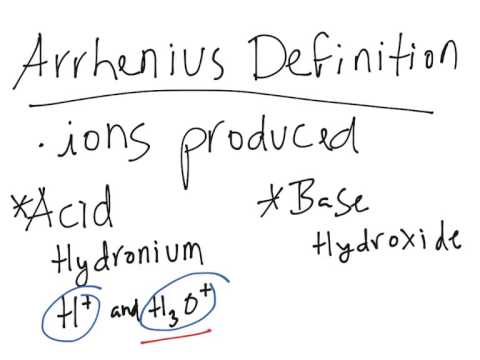 Arrhenius Definition
· ions produced
*Acid
Hydronium
H⁺ and H₃O⁺
*Base
Hydroxide